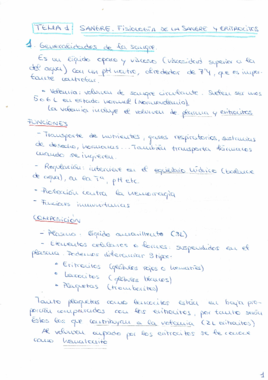 TEMA 1 SANGRE, FISIOLOGÍA DE LA SANGRE Y ERITROCITOS
1 Generalidades de la sangre
Es un líquido opaco y viscoso (viscosidad superior a la
del agua) con un pH neutro, alrededor de 7'4, que es impor-
tante controlar.
Volemia: volumen de sangre circulante. Suelen ser unos
5-6 L en estado normal (normovolemia)
(la volemia incluye el volumen de plasma y eritrocitos
FUNCIONES
- Transporte de nutrientes, gases respiratorios, sustancias
de desecho, hormonas... También transporta fármacos
cuando se ingieren.
- Regulación: interviene en el equilibrio hídrico (balance
de agua), en la Tª, pH etc
- Protección contra la hemorragia
- Función inmunitaria
COMPOSICIÓN
- Plasma: líquido amarillento (3L)
- Elementos celulares o formes: suspendidos en el
plasma. Podemos diferenciar 3 tipos:
Eritrocitos (glóbulos rojos o hematíes)
Leucocitos (glóbulos blancos)
Plaquetas (trombocitos)
Tanto plaquetas como leucocitos están en baja pro-
porción comparados con los eritrocitos, por tanto serán
éstos los que contribuyan a la volemia (2L eritrocitos)
Al volumen ocupado por los eritrocitos se le conoce
como hematocrito
1